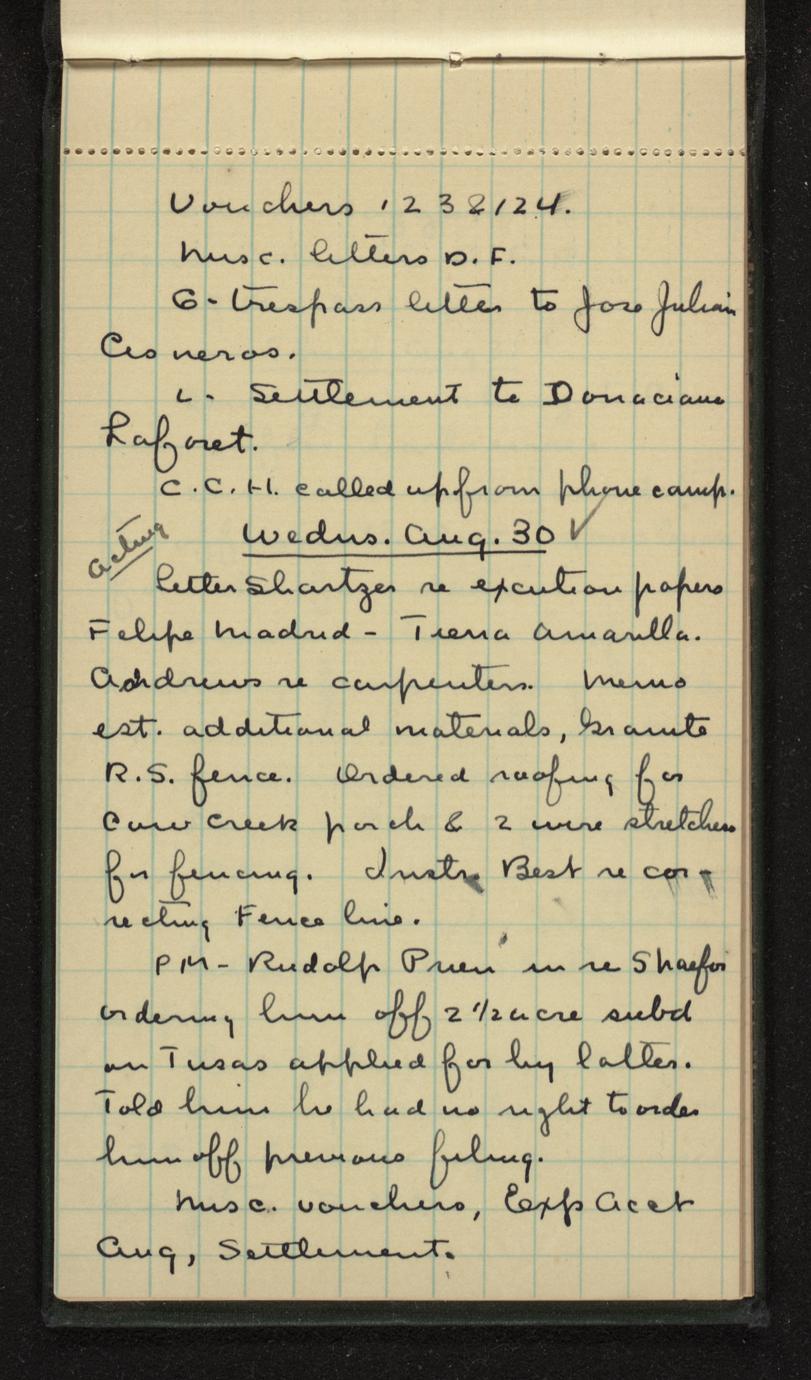 Vouchers 123 & 124.
Misc. letters D. F.
G - trespass letter to Jose Julian
Cisneros.
L - Settlement to Donaciano
Laforet.
C.C.H. called up from phone camp.
Wednes. Aug. 30 ✓
Acting
Letter Shartzer re excution papers
Felipe Madrid - Tierra Amarilla.
Andrews re carpenters. Memo
est. additional materials, Granite
R.S. fence. Ordered roofing for
Cow Creek porch & 2 wire stretchers
for fencing. Instr. Best re cor-
recting Fence line.
PM - Rudolf Prien in re Shaefor
ordering him off 2 1/2 acre subd
on Tusas applied for by latter.
Told him he had no right to order
him off previous filing.
Misc. vouchers, Exp Acct
Aug, Settlement.